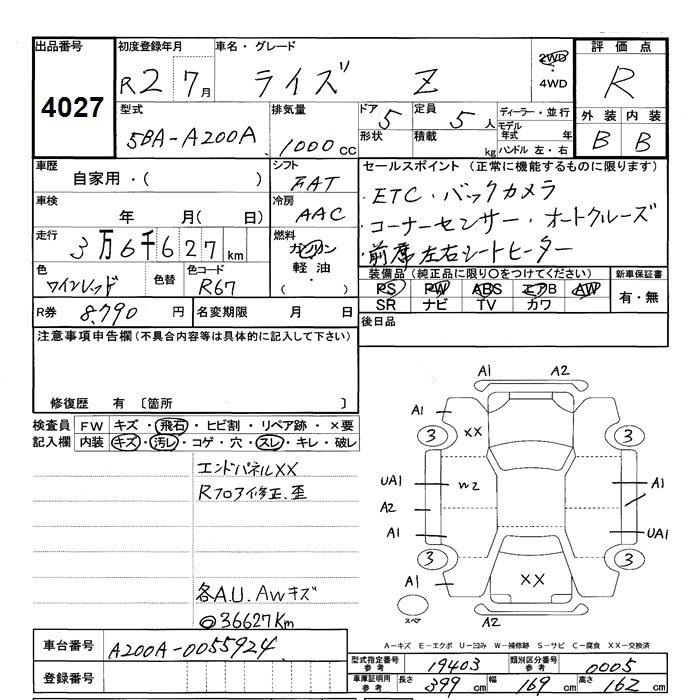 出品番号 4027
初度登録年月 R2 7月
車名・グレード ライズ Z
2WD
4WD
評価点 R
外装 内装
B B
型式 5BA-A200A
排気量 1000 CC
ドア 5
形状
定員 5 人
積載 kg
ディーラー・並行
モデル年式 年
ハンドル 左・右
車歴 自家用・( )
シフト FAT
車検 年 月( 日)
冷房 AAC
走行 3万6千627 km
燃料 ガソリン
軽油・
( )
色 ワインレッド
色替
色コード R67
R券 8,790 円
名変期限 月 日
セールスポイント (正常に機能するものに限ります)
・ETC・バックカメラ
・コーナーセンサー・オートクルーズ
・前席左右シートヒーター
装備品(純正品に限り○をつけてください)
PS PW ABS エアB AW
SR ナビ TV カワ
新車保証書
有・無
後日品
注意事項申告欄(不具合内容等は具体的に記入して下さい)
修復歴 有 〔箇所 〕
検査員記入欄
FW キズ・飛石・ヒビ割・リペア跡・×要
内装 キズ・汚レ・コゲ・穴・スレ・キレ・破レ
エンドパネルXX
Rフロア修正、歪
各A.U. AWキズ
◎36627Km
A1 A2
A1
XX
3 3
UA1 A1
A2
A1 UA1
3 3
A1
XX
スペア
A2
A-キズ E-エクボ U-凹み W-補修跡 S-サビ C-腐食 XX-交換済
車台番号 A200A-0055924
登録番号
型式指定番号参考 19403
類別区分番号参考 0005
車庫証明用参考 長さ 399 cm 幅 169 cm 高さ 162 cm